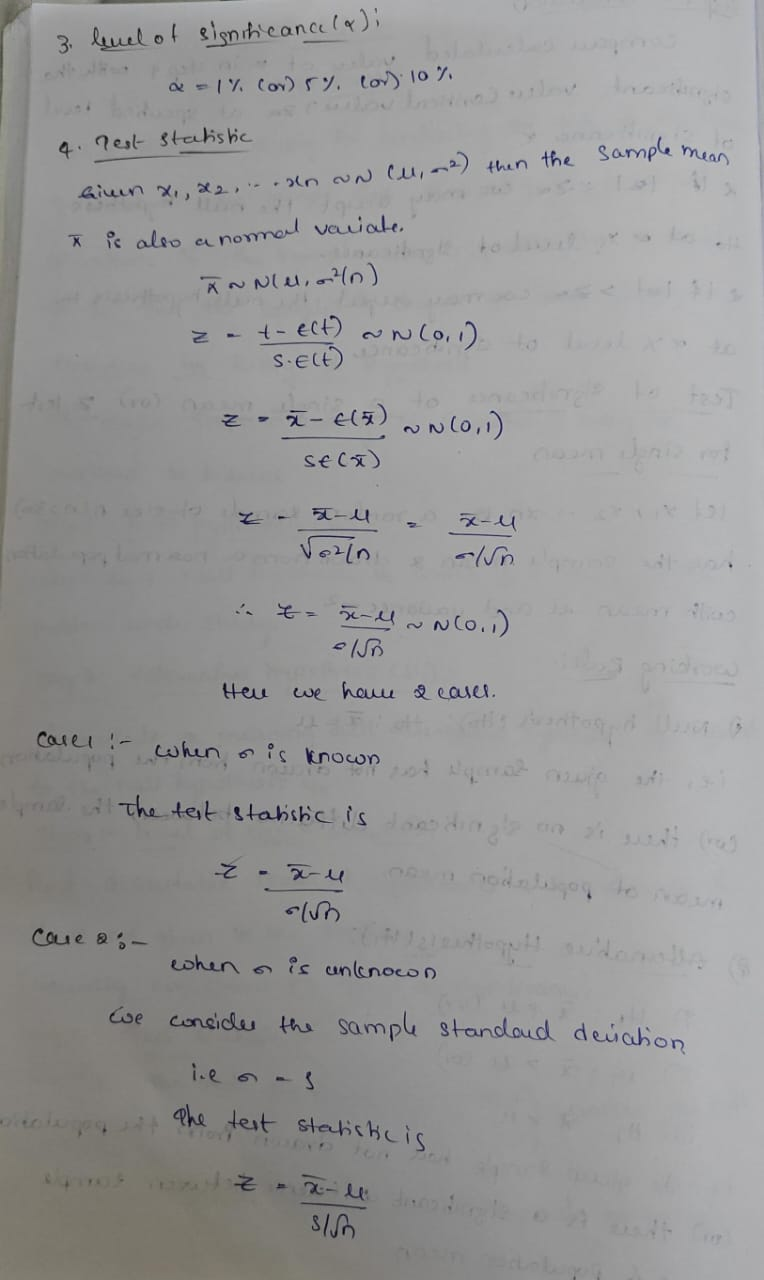 3. level of significance (α);
α = 1% (or) 5%. (or) 10%.
4. Test Statistic
Given x₁, x₂, ... xn ~ N (μ, σ²) then the Sample mean
x̄ is also a normal variate.
x̄ ~ N(μ, σ²/n)
z = t - E(t) / S.E(t) ~ N(0,1)
z = x̄ - E(x̄) / SE(x̄) ~ N(0,1)
z = x̄-μ / √σ²/n = x̄-μ / σ/√n
∴ z = x̄-μ / σ/√n ~ N(0,1)
Here we have 2 cases.
Case1 :- when σ is known
The test statistic is
z = x̄-μ / σ/√n
Case 2 :-
when σ is unknown
we consider the sample standard deviation
i.e σ = s
The test statistic is
z = x̄-μ / s/√n